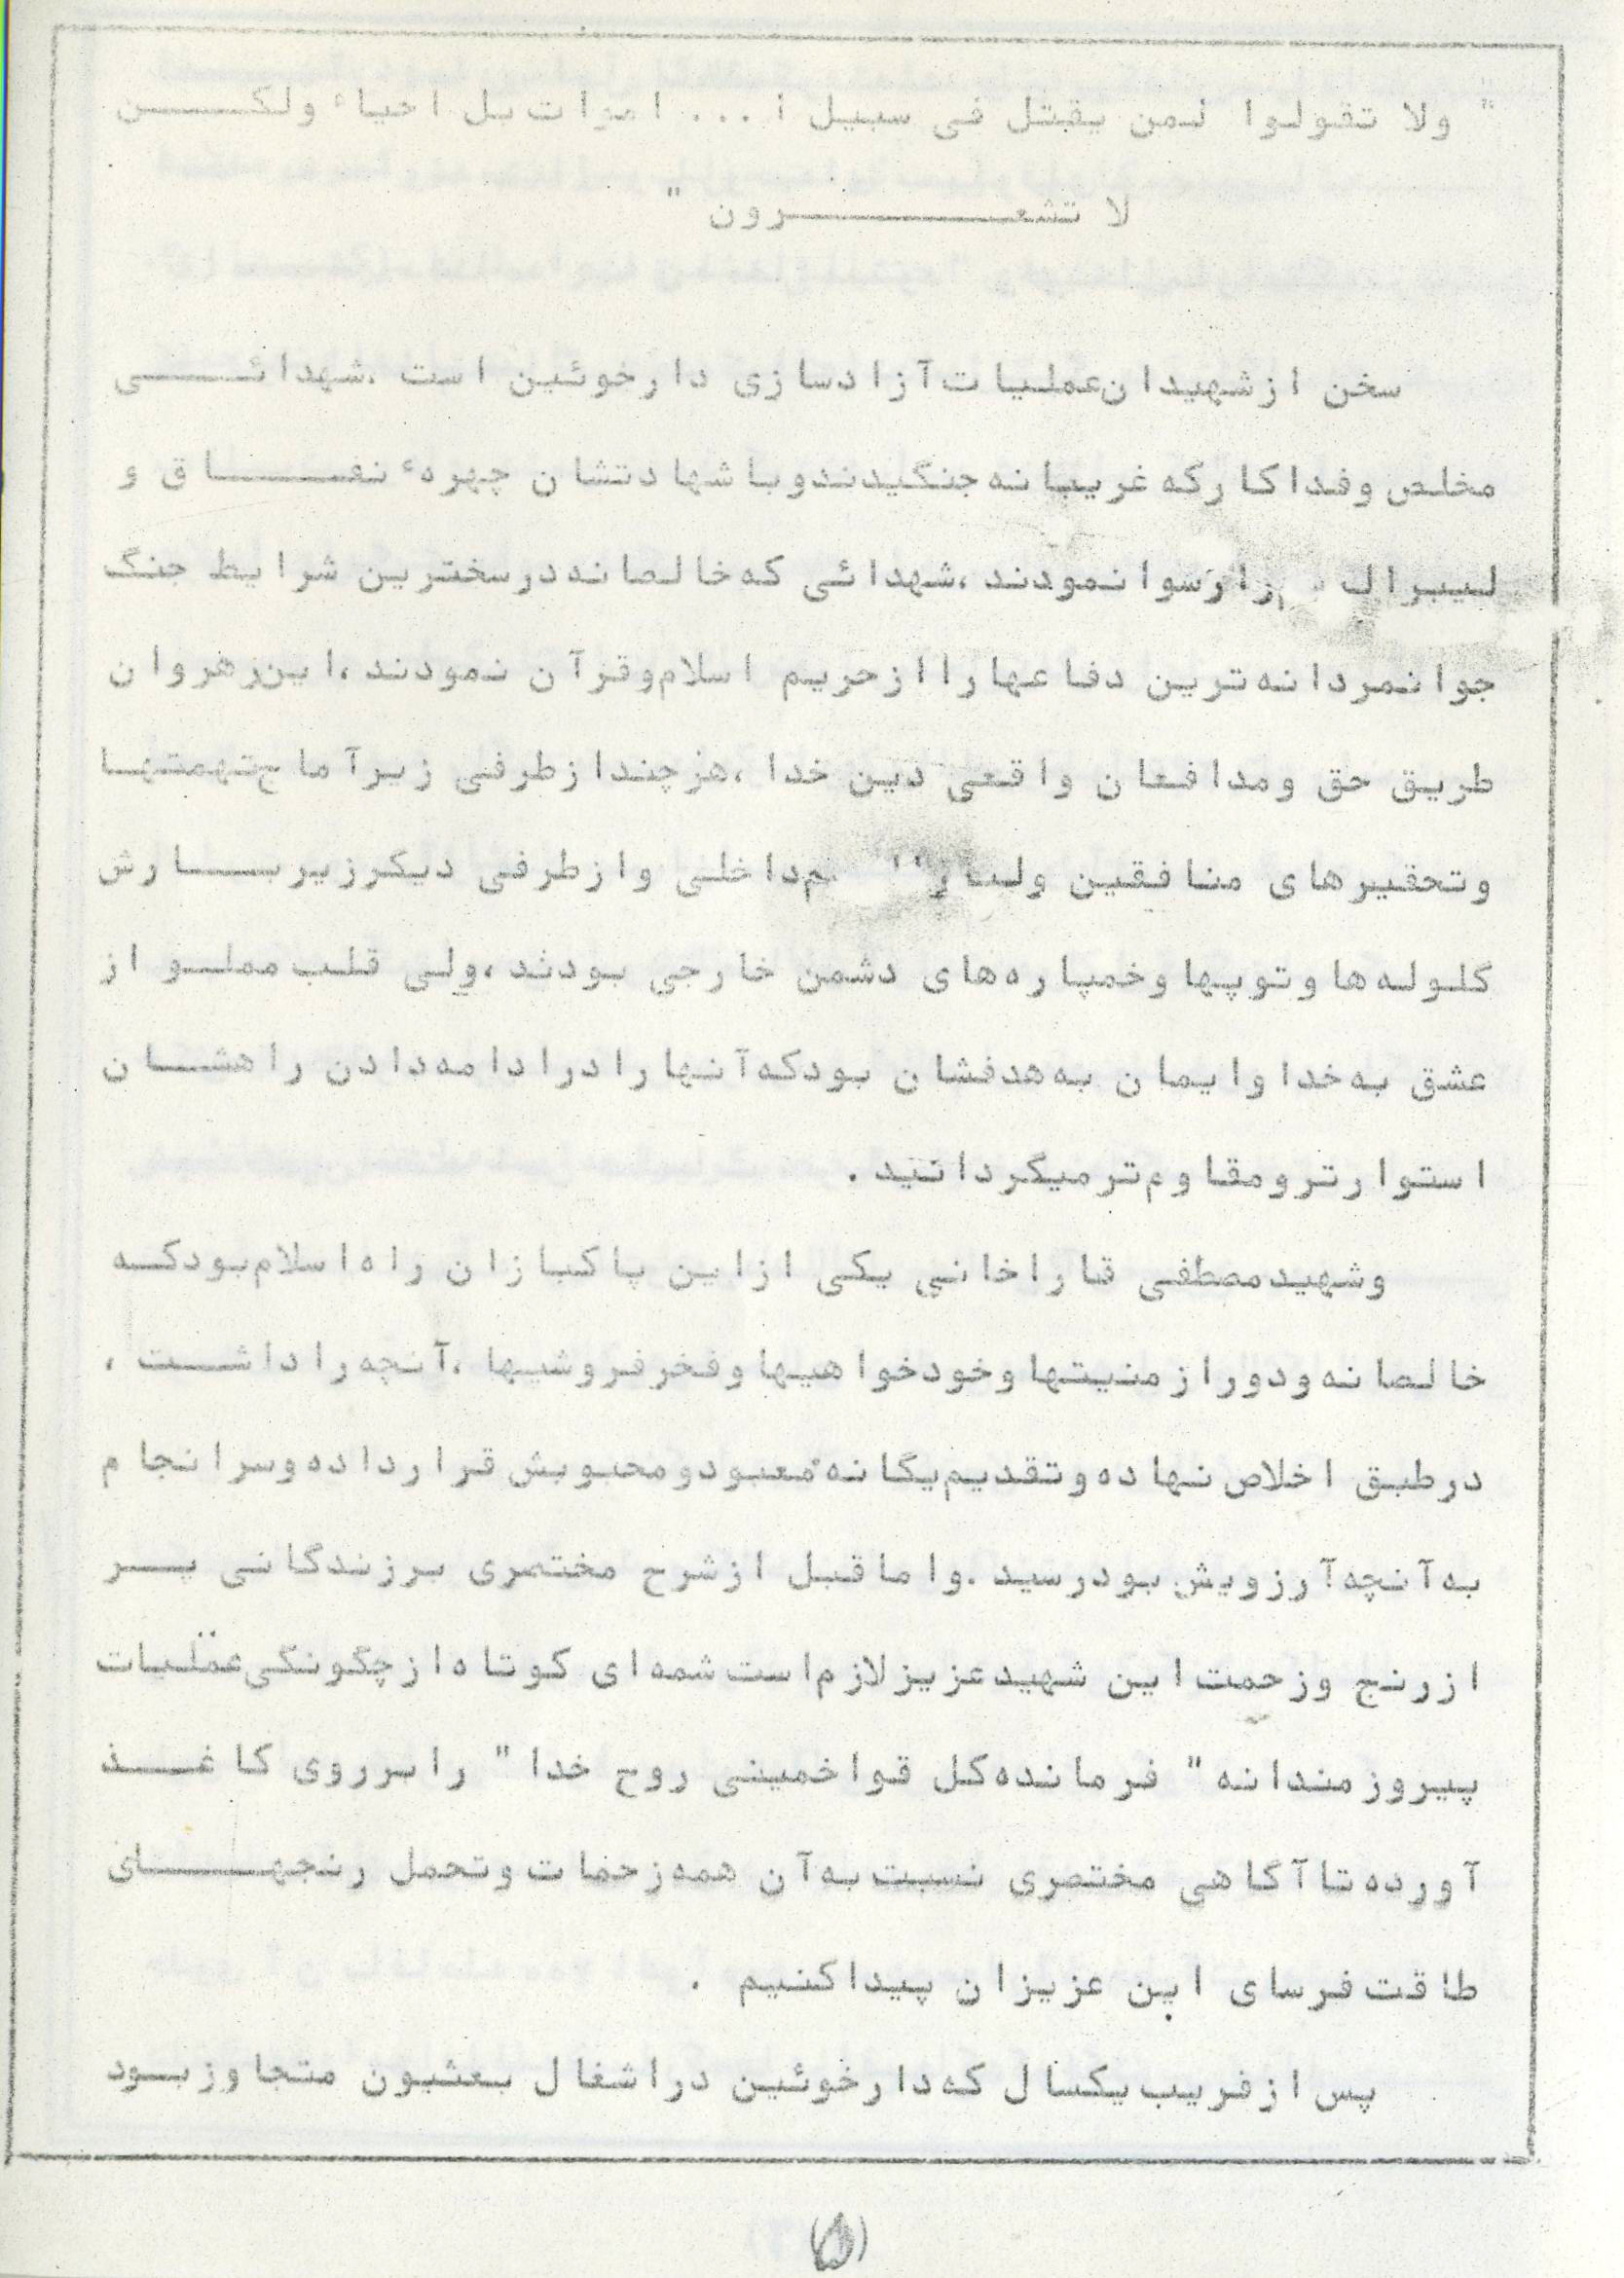 " ولا تقولوا لمن يقتل فی سبیل ا ... اموات بل احیاء ولکن
لا تشعرون "
سخن از شهیدان عملیات آزادسازی دارخوئین است ،شهدائی
مخلص وفداکار که غریبانه جنگیدند وبا شهادتشان چهرهء نفاق و
لیبرال را رسوا نمودند ،شهدائی که خالصانه در سخترین شرایط جنگ
جوانمردانه ترین دفاعها را از حریم اسلام وقرآن نمودند ،این رهروان
طریق حق ومدافعان واقعی دین خدا ،هرچند از طرفی زیر آماج تهمتها
وتحقیرهای منافقین داخلی واز طرفی دیگر زیر بارش
گلوله ها وتوپها وخمپاره های دشمن خارجی بودند ،ولی قلب مملو از
عشق به خدا وایمان به هدفشان بود که آنها را در ادامه دادن راهشان
استوارتر ومقاوم تر میگردانید .
وشهید مصطفی قاراخانی یکی از این پاکبازان راه اسلام بود که
خالصانه ودور از منیتها وخودخواهیها وفخرفروشیها ،آنچه را داشت ،
در طبق اخلاص نهاده وتقدیم یگانه معبود ومحبوبش قرار داده وسرانجام
به آنچه آرزویش بود رسید .واما قبل از شرح مختصری بر زندگانی پر
از رنج وزحمت این شهید عزیز لازم است شمه ای کوتاه از چگونگی عملیات
پیروزمندانه " فرمانده کل قوا خمینی روح خدا " را بر روی کاغذ
آورده تا آگاهی مختصری نسبت به آن همه زحمات وتحمل رنجهای
طاقت فرسای این عزیزان پیدا کنیم .
پس از قریب یکسال که دارخوئین در اشغال بعثیون متجاوز بود
(۵)